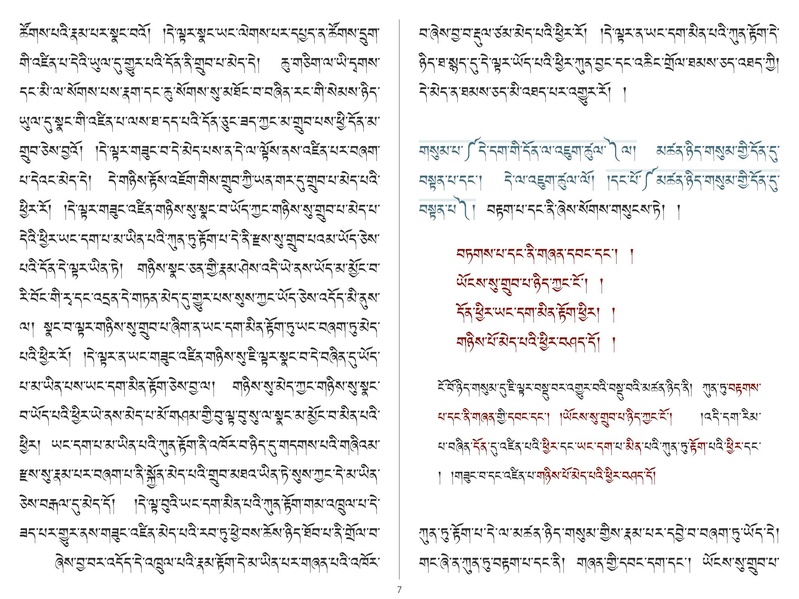 ཚོགས་པའི་རྣམ་པར་སྣང་བའོ། །དེ་ལྟར་སྣང་ཡང་ལེགས་པར་དཔྱད་ན་ཚོགས་དྲུག་
གི་འཛིན་པ་དེའི་ཡུལ་དུ་གྱུར་པའི་དོན་ནི་གྲུབ་པ་མེད་དེ། ཆུ་གཅིག་ལ་ཡི་དྭགས་
དང་མི་ལ་སོགས་པས་རྣག་དང་ཆུ་སོགས་སུ་མཐོང་བ་བཞིན་རང་གི་སེམས་ཉིད་
ཡུལ་དུ་སྣང་གི་འཛིན་པ་ལས་ཐ་དད་པའི་དོན་ཅུང་ཟད་ཀྱང་མ་གྲུབ་པས་ཕྱི་དོན་མ་
གྲུབ་ཅེས་བྱའོ། །དེ་ལྟར་གཟུང་བ་དེ་མེད་པས་ན་དེ་ལ་ལྟོས་ནས་འཛིན་པར་བཞག་
པ་དེའང་མེད་དེ། དེ་གཉིས་ལྟོས་འཇོག་གིས་གྲུབ་ཀྱི་ཡན་གར་དུ་གྲུབ་པ་མེད་པའི་
ཕྱིར་རོ། །དེ་ལྟར་གཟུང་འཛིན་གཉིས་སུ་སྣང་བ་ཡོད་ཀྱང་གཉིས་སུ་གྲུབ་པ་མེད་པ་
དེའི་ཕྱིར་ཡང་དག་པ་མ་ཡིན་པའི་ཀུན་ཏུ་རྟོག་པ་དེ་ནི་རྫས་སུ་གྲུབ་པའམ་ཡོད་ཅེས་
པའི་དོན་དེ་ལྟར་ཡིན་ཏེ། གཉིས་སྣང་ཅན་གྱི་རྣམ་ཤེས་འདི་ཡེ་ནས་ཡོད་མ་མྱོང་བ་
རི་བོང་གི་རྭ་དང་འདྲན་དེ་གཏན་མེད་དུ་གྱུར་པས་སུས་ཀྱང་ཡོད་ཅེས་འདོད་མི་ནུས་
ལ། སྣང་བ་ལྟར་གཉིས་སུ་གྲུབ་པ་ཞིག་ན་ཡང་དག་མིན་རྟོག་ཏུ་ཡང་བཞག་ཏུ་མེད་
པའི་ཕྱིར་རོ། །དེ་ལྟར་ན་ཡང་གཟུང་འཛིན་གཉིས་སུ་ཇི་ལྟར་སྣང་བ་དེ་བཞིན་དུ་ཡོད་
པ་མ་ཡིན་པས་ཡང་དག་མིན་རྟོག་ཅེས་བྱ་ལ། གཉིས་སུ་མེད་ཀྱང་གཉིས་སུ་སྣང་
བ་ཡོད་པའི་ཕྱིར་ཡེ་ནས་མེད་པ་མོ་གཤམ་གྱི་བུ་ལྟ་བུ་སུ་ལ་སྣང་མ་མྱོང་བ་མིན་པའི་
ཕྱིར། ཡང་དག་པ་མ་ཡིན་པའི་ཀུན་རྟོག་ནི་འཁོར་བ་ཉིད་དུ་གདགས་པའི་གཞིའམ་
རྫས་སུ་རྣམ་པར་བཞག་པ་ནི་སྐྱོན་མེད་པའི་གྲུབ་མཐའ་ཡིན་ཏེ་སུས་ཀྱང་དེ་མ་ཡིན་
ཅེས་བརྒལ་དུ་མེད་དོ། །དེ་ལྟ་བུའི་ཡང་དག་མིན་པའི་ཀུན་རྟོག་གམ་འཁྲུལ་པ་དེ་
ཟད་པར་གྱུར་ནས་གཟུང་འཛིན་མེད་པའི་རབ་ཏུ་ཕྱེ་བས་ཆོས་ཉིད་ཐོབ་པ་ནི་གྲོལ་བ་
ཞེས་བྱ་བར་འདོད་དེ་འཁྲུལ་པའི་རྣམ་རྟོག་དེ་མ་ཡིན་པར་གཞན་པའི་འཁོར་
བ་ཞེས་བྱ་བ་རྡུལ་ཙམ་མེད་པའི་ཕྱིར་རོ། །དེ་ལྟར་ན་ཡང་དག་མིན་པའི་ཀུན་རྟོག་དེ་
ཉིད་ཐ་སྙད་དུ་དེ་ལྟར་ཡོད་པའི་ཕྱིར་ཀུན་བྱང་དང་འཆིང་གྲོལ་ཐམས་ཅད་འཐད་ཀྱི།
དེ་མེད་ན་ཐམས་ཅད་མི་འཐད་པར་འགྱུར་རོ། །
གསུམ་པ་༼དེ་དག་གི་དོན་ལ་འཇུག་ཚུལ་༽ལ། མཚན་ཉིད་གསུམ་གྱི་དོན་དུ་
བསྟན་པ་དང་། དེ་ལ་འཇུག་ཚུལ་ལོ། །དང་པོ་༼མཚན་ཉིད་གསུམ་གྱི་དོན་དུ་
བསྟན་པ་༽། བརྟག་པ་དང་ནི་ཞེས་སོགས་གསུངས་ཏེ། །
བཏགས་པ་དང་ནི་གཞན་དབང་དང་། །
ཡོངས་སུ་གྲུབ་པ་ཉིད་ཀྱང་ངོ་། །
དོན་ཕྱིར་ཡང་དག་མིན་རྟོག་ཕྱིར། །
གཉིས་པོ་མེད་པའི་ཕྱིར་བཤད་དོ། །
ངོ་བོ་ཉིད་གསུམ་དུ་ཇི་ལྟར་བསྡུ་བར་འགྱུར་བའི་བསྡུ་བའི་མཚན་ཉིད་ནི། ཀུན་ཏུ་བརྟགས་
པ་དང་ནི་གཞན་གྱི་དབང་དང་། །ཡོངས་སུ་གྲུབ་པ་ཉིད་ཀྱང་ངོ་། །འདི་དག་རིམ་
པ་བཞིན་དོན་དུ་འཛིན་པའི་ཕྱིར་དང་ཡང་དག་པ་མིན་པའི་ཀུན་ཏུ་རྟོག་པའི་ཕྱིར་དང་
། །གཟུང་བ་དང་འཛིན་པ་གཉིས་པོ་མེད་པའི་ཕྱིར་བཤད་དོ།
ཀུན་ཏུ་རྟོག་པ་དེ་ལ་མཚན་ཉིད་གསུམ་གྱིས་རྣམ་པར་དབྱེ་བ་བཞག་ཏུ་ཡོད་དེ།
གང་ཞེ་ན་ཀུན་ཏུ་བརྟག་པ་དང་ནི། གཞན་གྱི་དབང་དག་དང་། ཡོངས་སུ་གྲུབ་པ་
7